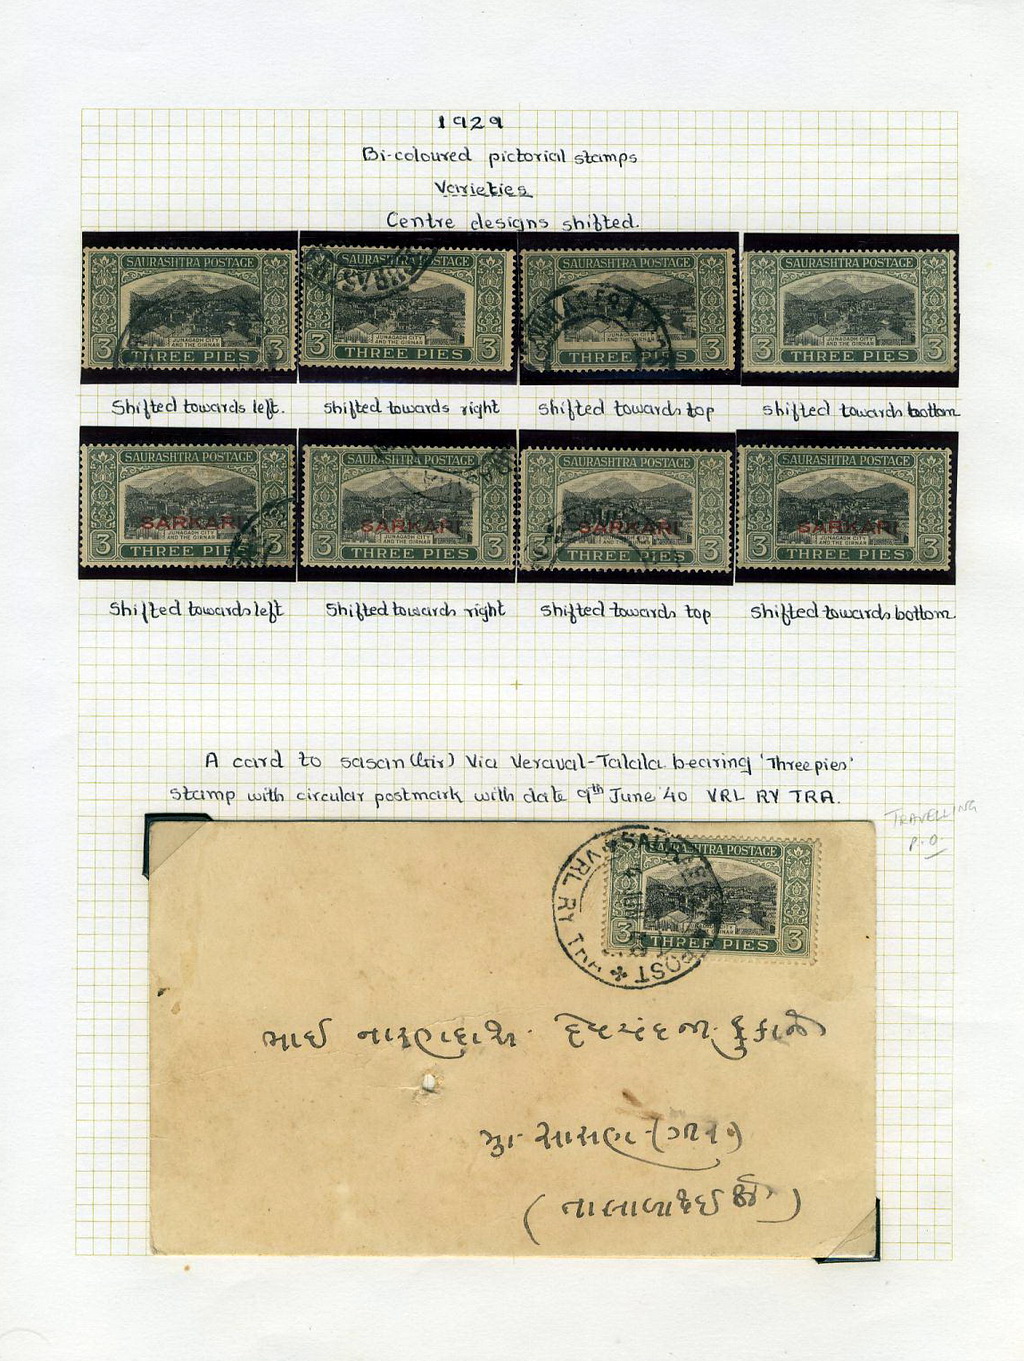 1929
Bi-coloured pictorial stamps
Varieties
Centre designs shifted.
SAURASHTRA POSTAGE
JUNAGADH CITY
AND THE GIRNAR
3 THREE PIES 3
SAURASHTRA POSTAGE
JUNAGADH CITY
AND THE GIRNAR
3 THREE PIES 3
SAURASHTRA POSTAGE
JUNAGADH CITY
AND THE GIRNAR
3 THREE PIES 3
SAURASHTRA POSTAGE
JUNAGADH CITY
AND THE GIRNAR
3 THREE PIES 3
Shifted towards left.
shifted towards right
shifted towards top
shifted towards bottom
SAURASHTRA POSTAGE
SARKARI
JUNAGADH CITY
AND THE GIRNAR
3 THREE PIES 3
SAURASHTRA POSTAGE
SARKARI
JUNAGADH CITY
AND THE GIRNAR
3 THREE PIES 3
SAURASHTRA POSTAGE
SARKARI
3 THREE PIES 3
SAURASHTRA POSTAGE
SARKARI
JUNAGADH CITY
AND THE GIRNAR
3 THREE PIES 3
Shifted towards left
Shifted towards right
Shifted towards top
Shifted towards bottom
A card to sasan (Gir) Via Veraval-Talala bearing 'Three pies'
stamp with circular postmark with date 9th June '40 VRL RY TRA.
TRAVELLING
P.O
SAURASHTRA POSTAGE
3 THREE PIES 3
VRL RY TRA
POST
ભાઈ નારણદાસ દેવચંદ
મુ. સાસણ-(ગીર)